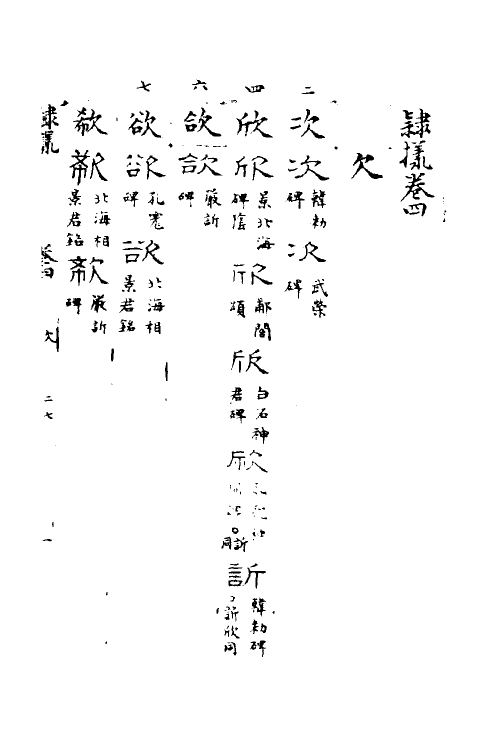 隸㨾卷四
欠
二
次
次 韓勑碑
次 武榮碑
四
欣
欣 景北海碑陰
欣 鄐閣頌
欣 白石神君碑
欣 訢同
訢 韓勑碑 訢欣同
六
欱
欱 嚴訢碑
七
欲
欲 孔宙碑
欲 北海相景君銘
欷
欷 北海相景君銘
欷 嚴訢碑
隸㨾
卷四
欠
二七
一